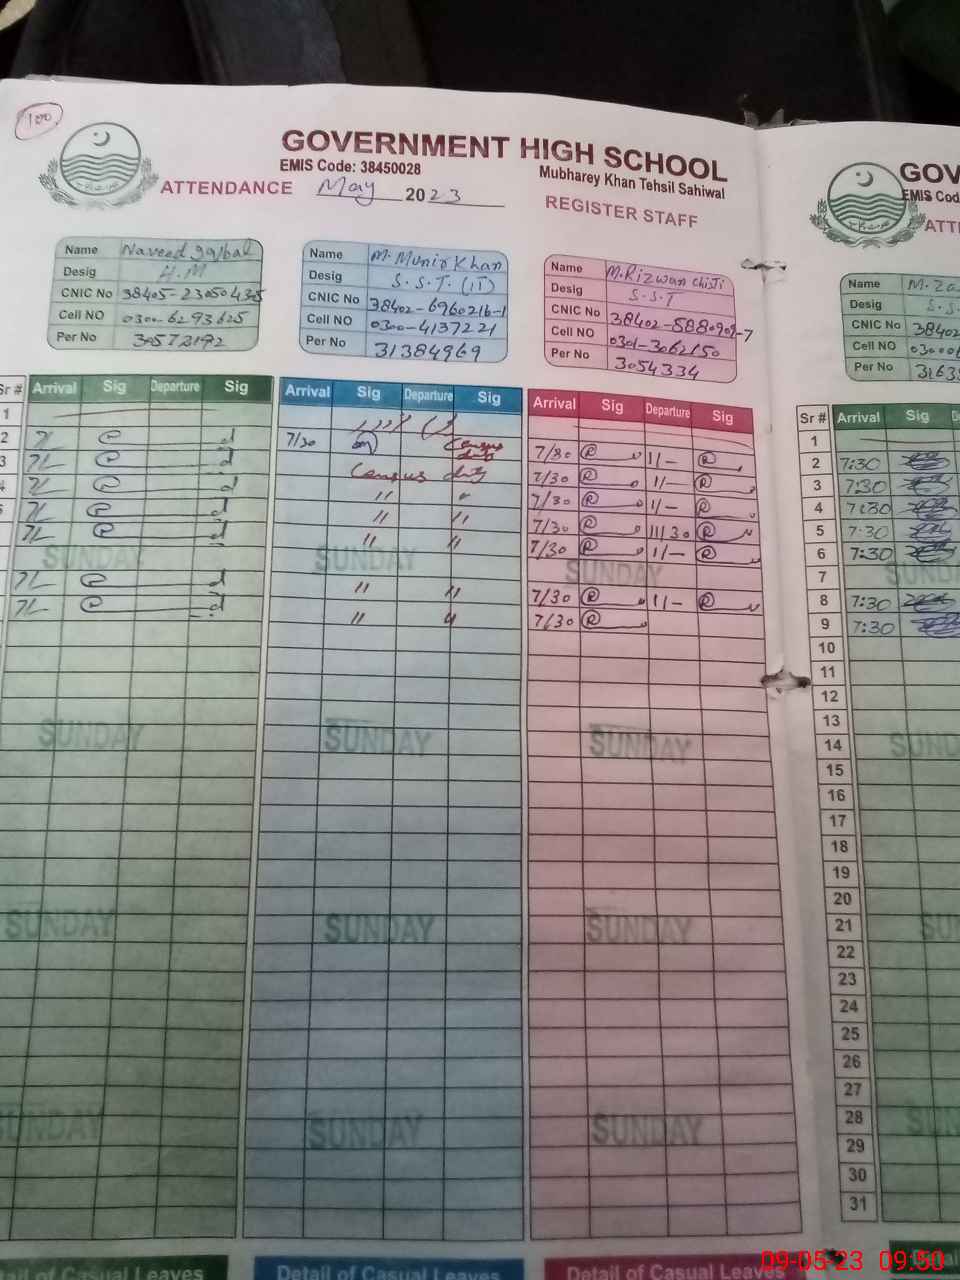 100
GOVERNMENT HIGH SCHOOL
EMIS Code: 38450028
Mubharey Khan Tehsil Sahiwal
ATTENDANCE May 2023
REGISTER STAFF
Name Naveed Iqbal
Desig H.M
CNIC No 38405-2305043-5
Cell NO 0300-6293625
Per No 30572192
Name M. Munir Khan
Desig S.S.T. (IT)
CNIC No 38402-6960216-1
Cell NO 0300-4137221
Per No 31384969
Name M. Rizwan Chisti
Desig S.S.T
CNIC No 38402-5880909-7
Cell NO 0301-3062150
Per No 3054334
GOV
EMIS Cod
ATT
Name M. Za
Desig S.S.
CNIC No 38402
Cell NO
Per No 3163
Sr # Arrival Sig Departure Sig
Arrival Sig Departure Sig
Arrival Sig Departure Sig
Sr # Arrival Sig
1
1
2 7/30 Census duty 7/30 11/- 2 7:30
3 Census duty 7/30 11/- 3 7:30
4 " " 7/30 11/- 4 7:30
5 " " 7/30 11/30 5 7:30
" " 7/30 11/- 6 7:30
SUNDAY SUNDAY SUNDAY 7 SUNDA
" " 7/30 11/- 8 7:30
" " 7/30 9 7:30
10
11
12
13
SUNDAY SUNDAY SUNDAY 14 SUND
15
16
17
18
19
20
SUNDAY SUNDAY SUNDAY 21 SU
22
23
24
25
26
27
SUNDAY SUNDAY SUNDAY 28
29
30
31
Detail of Casual Leaves
Detail of Casual Leaves
Detail of Casual Leaves
09-05-23 09:50